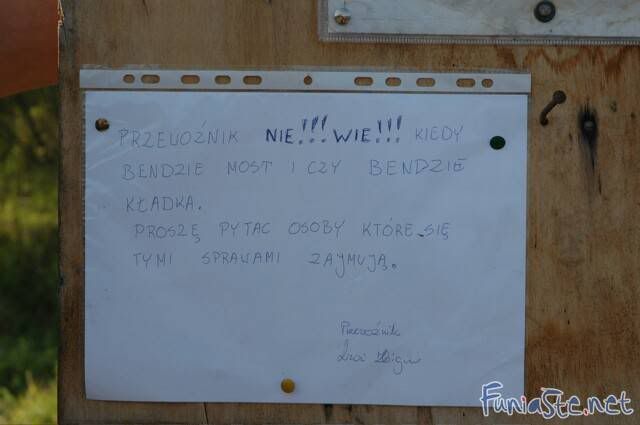 PRZEWOŹNIK NIE!!! WIE!!! KIEDY
BENDZIE MOST I CZY BENDZIE
KŁADKA.
PROSZĘ PYTAC OSOBY KTÓRE SIĘ
TYMI SPRAWAMI ZAYMUJĄ.
Przewoźnik
Funiaste.net